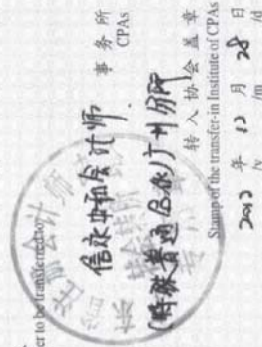 er to be transferred to
信永中和会计师
事务所
CPAs
(特殊普通合伙)广州分所
转入协会盖章
Stamp of the transfer-in Institute of CPAs
2012 年 12 月 28 日
/y /m /d